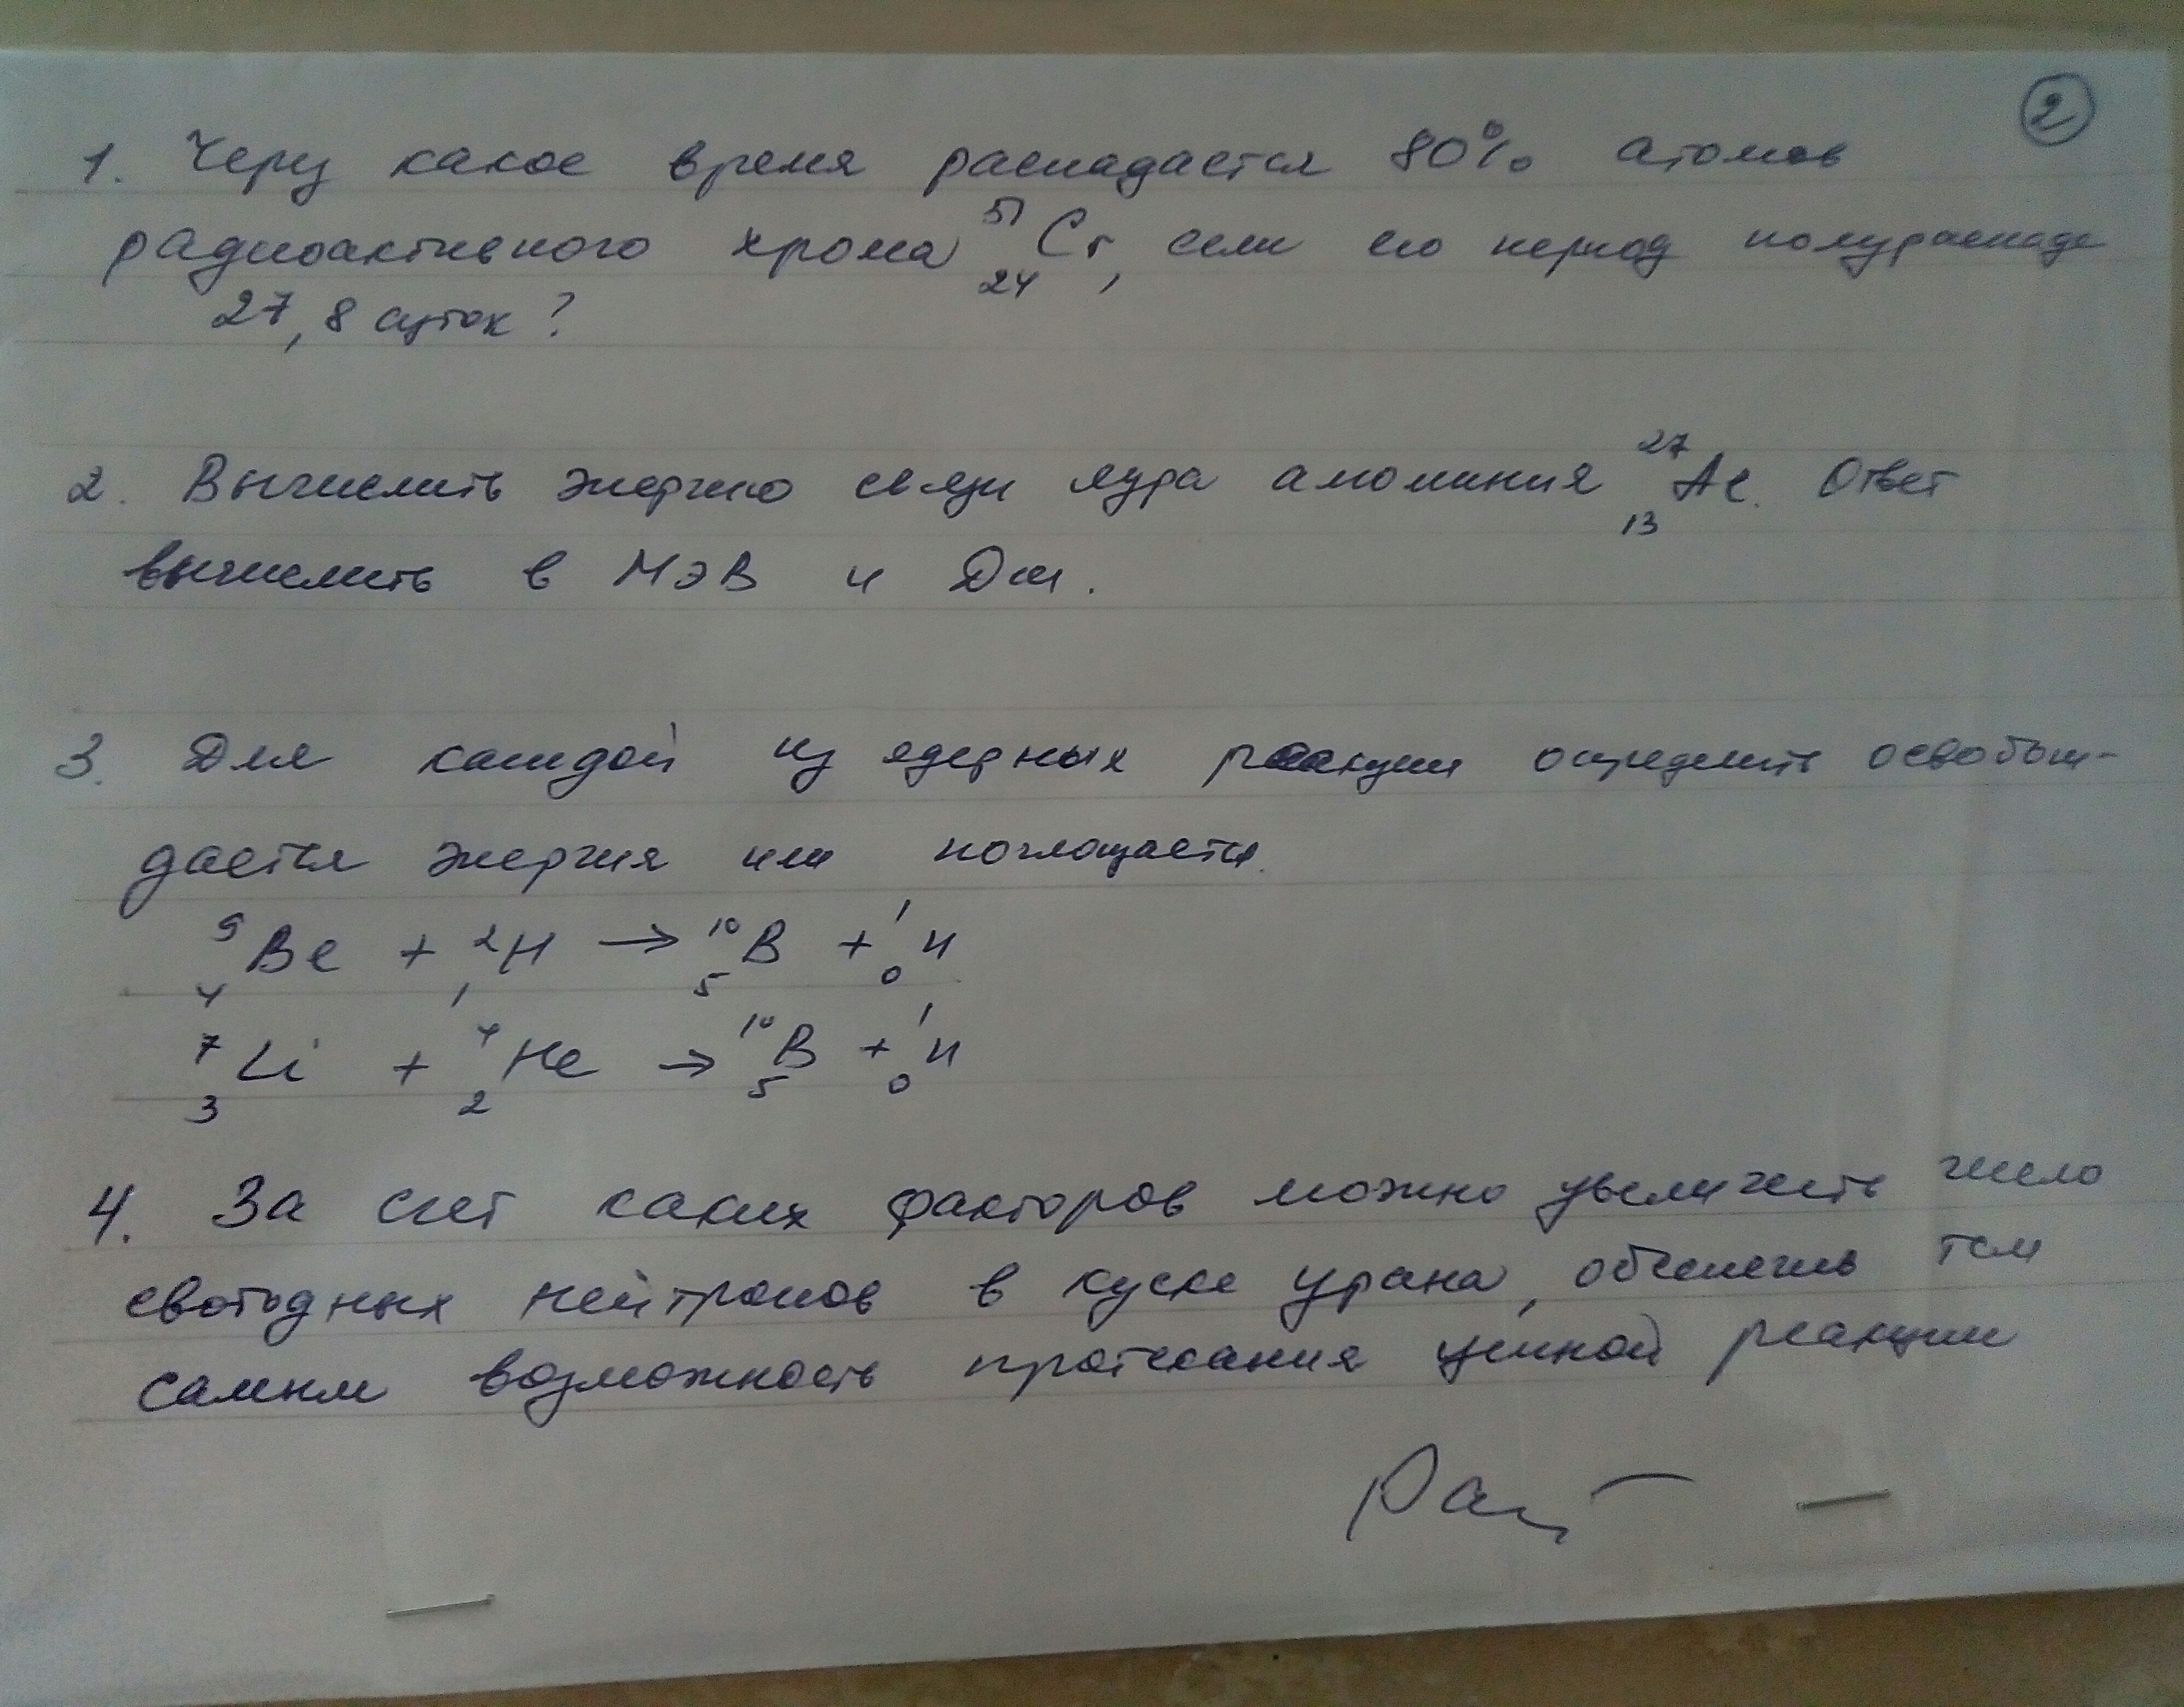 2
1. Через какое время распадается 80% атомов
радиоактивного хрома ⁵¹₂₄Cr, если его период полураспада
27,8 суток?
2. Вычислить энергию связи ядра алюминия ²⁷₁₃Al. Ответ
вычислить в МэВ и Дж.
3. Для каждой из ядерных реакции определить освобож-
дается энергия или поглощается.
⁹₄Be + ²₁H → ¹⁰₅B + ¹₀n
⁷₃Li + ⁴₂He → ¹⁰₅B + ¹₀n
4. За счет каких факторов можно увеличить число
свободных нейтронов в куске урана, обеспечив тем
самым возможность протекания цепной реакции